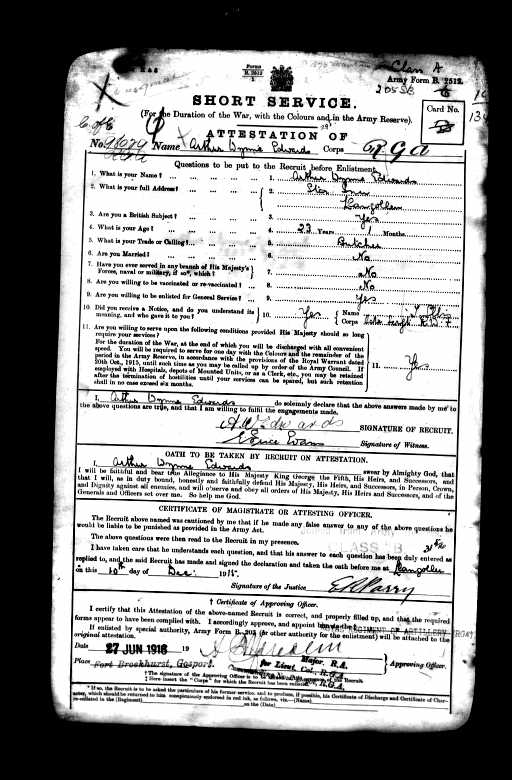 Class A
Forms
B. 2512
1
Army Form B. 2512.
20558
SHORT SERVICE.
(For the Duration of the War, with the Colours and in the Army Reserve).
Card No.
C of E
ATTESTATION OF
No. 98079 Name Arthur Wynne Edwards Corps R G A
Questions to be put to the Recruit before Enlistment.
1. What is your Name? 1. Arthur Wynne Edwards
2. What is your full Address? 2.
Llangollen
3. Are you a British Subject? 3. Yes
4. What is your Age? 4. 23 Years 1 Months.
5. What is your Trade or Calling? 5. Butcher
6. Are you Married? 6. No
7. Have you ever served in any branch of His Majesty's
Forces, naval or military, if so*, which? 7. No
8. Are you willing to be vaccinated or re-vaccinated? 8. No
9. Are you willing to be enlisted for General Service? 9. Yes
10. Did you receive a Notice, and do you understand its
meaning, and who gave it to you? 10. Yes Name
Corps
11. Are you willing to serve upon the following conditions provided His Majesty should so long
require your services?
For the duration of the War, at the end of which you will be discharged with all convenient
speed. You will be required to serve for one day with the Colours and the remainder of the
period in the Army Reserve, in accordance with the provisions of the Royal Warrant dated
20th Oct., 1915, until such time as you may be called up by order of the Army Council. If
employed with Hospitals, depots of Mounted Units, or as a Clerk, etc., you may be retained
after the termination of hostilities until your services can be spared, but such retention
shall in no case exceed six months.
11. Yes
I, Arthur Wynne Edwards do solemnly declare that the above answers made by me to
the above questions are true, and that I am willing to fulfil the engagements made.
A W Edwards SIGNATURE OF RECRUIT.
Evans Signature of Witness.
OATH TO BE TAKEN BY RECRUIT ON ATTESTATION.
I, Arthur Wynne Edwards swear by Almighty God, that
I will be faithful and bear true Allegiance to His Majesty King George the Fifth, His Heirs, and Successors, and
that I will, as in duty bound, honestly and faithfully defend His Majesty, His Heirs, and Successors, in Person, Crown,
and Dignity against all enemies, and will observe and obey all orders of His Majesty, His Heirs and Successors, and of the
Generals and Officers set over me. So help me God.
CERTIFICATE OF MAGISTRATE OR ATTESTING OFFICER.
The Recruit above named was cautioned by me that if he made any false answer to any of the above questions he
would be liable to be punished as provided in the Army Act.
The above questions were then read to the Recruit in my presence.
I have taken care that he understands each question, and that his answer to each question has been duly entered as
replied to, and the said Recruit has made and signed the declaration and taken the oath before me at Llangollen
on this 10th day of Dec. 1915.
Signature of the Justice
† Certificate of Approving Officer.
I certify that this Attestation of the above-named Recruit is correct, and properly filled up, and that the required
forms appear to have been complied with. I accordingly approve, and appoint him to the‡ ROYAL REGIMENT OF ARTILLERY (RGA)
If enlisted by special authority, Army Form B. 203 (or other authority for the enlistment) will be attached to the
original attestation.
Date 27 JUN 1916 19
Major, R.A.
for Lieut. Col., R.G.A. Approving Officer.
Place Fort Brockhurst, Gosport.
† The signature of the Approving Officer is to be
‡ Here insert the "Corps" for which the Recruit has been enlisted.
* If so, the Recruit is to be asked the particulars of his former service, and to produce, if possible, his Certificate of Discharge and Certificate of Character,